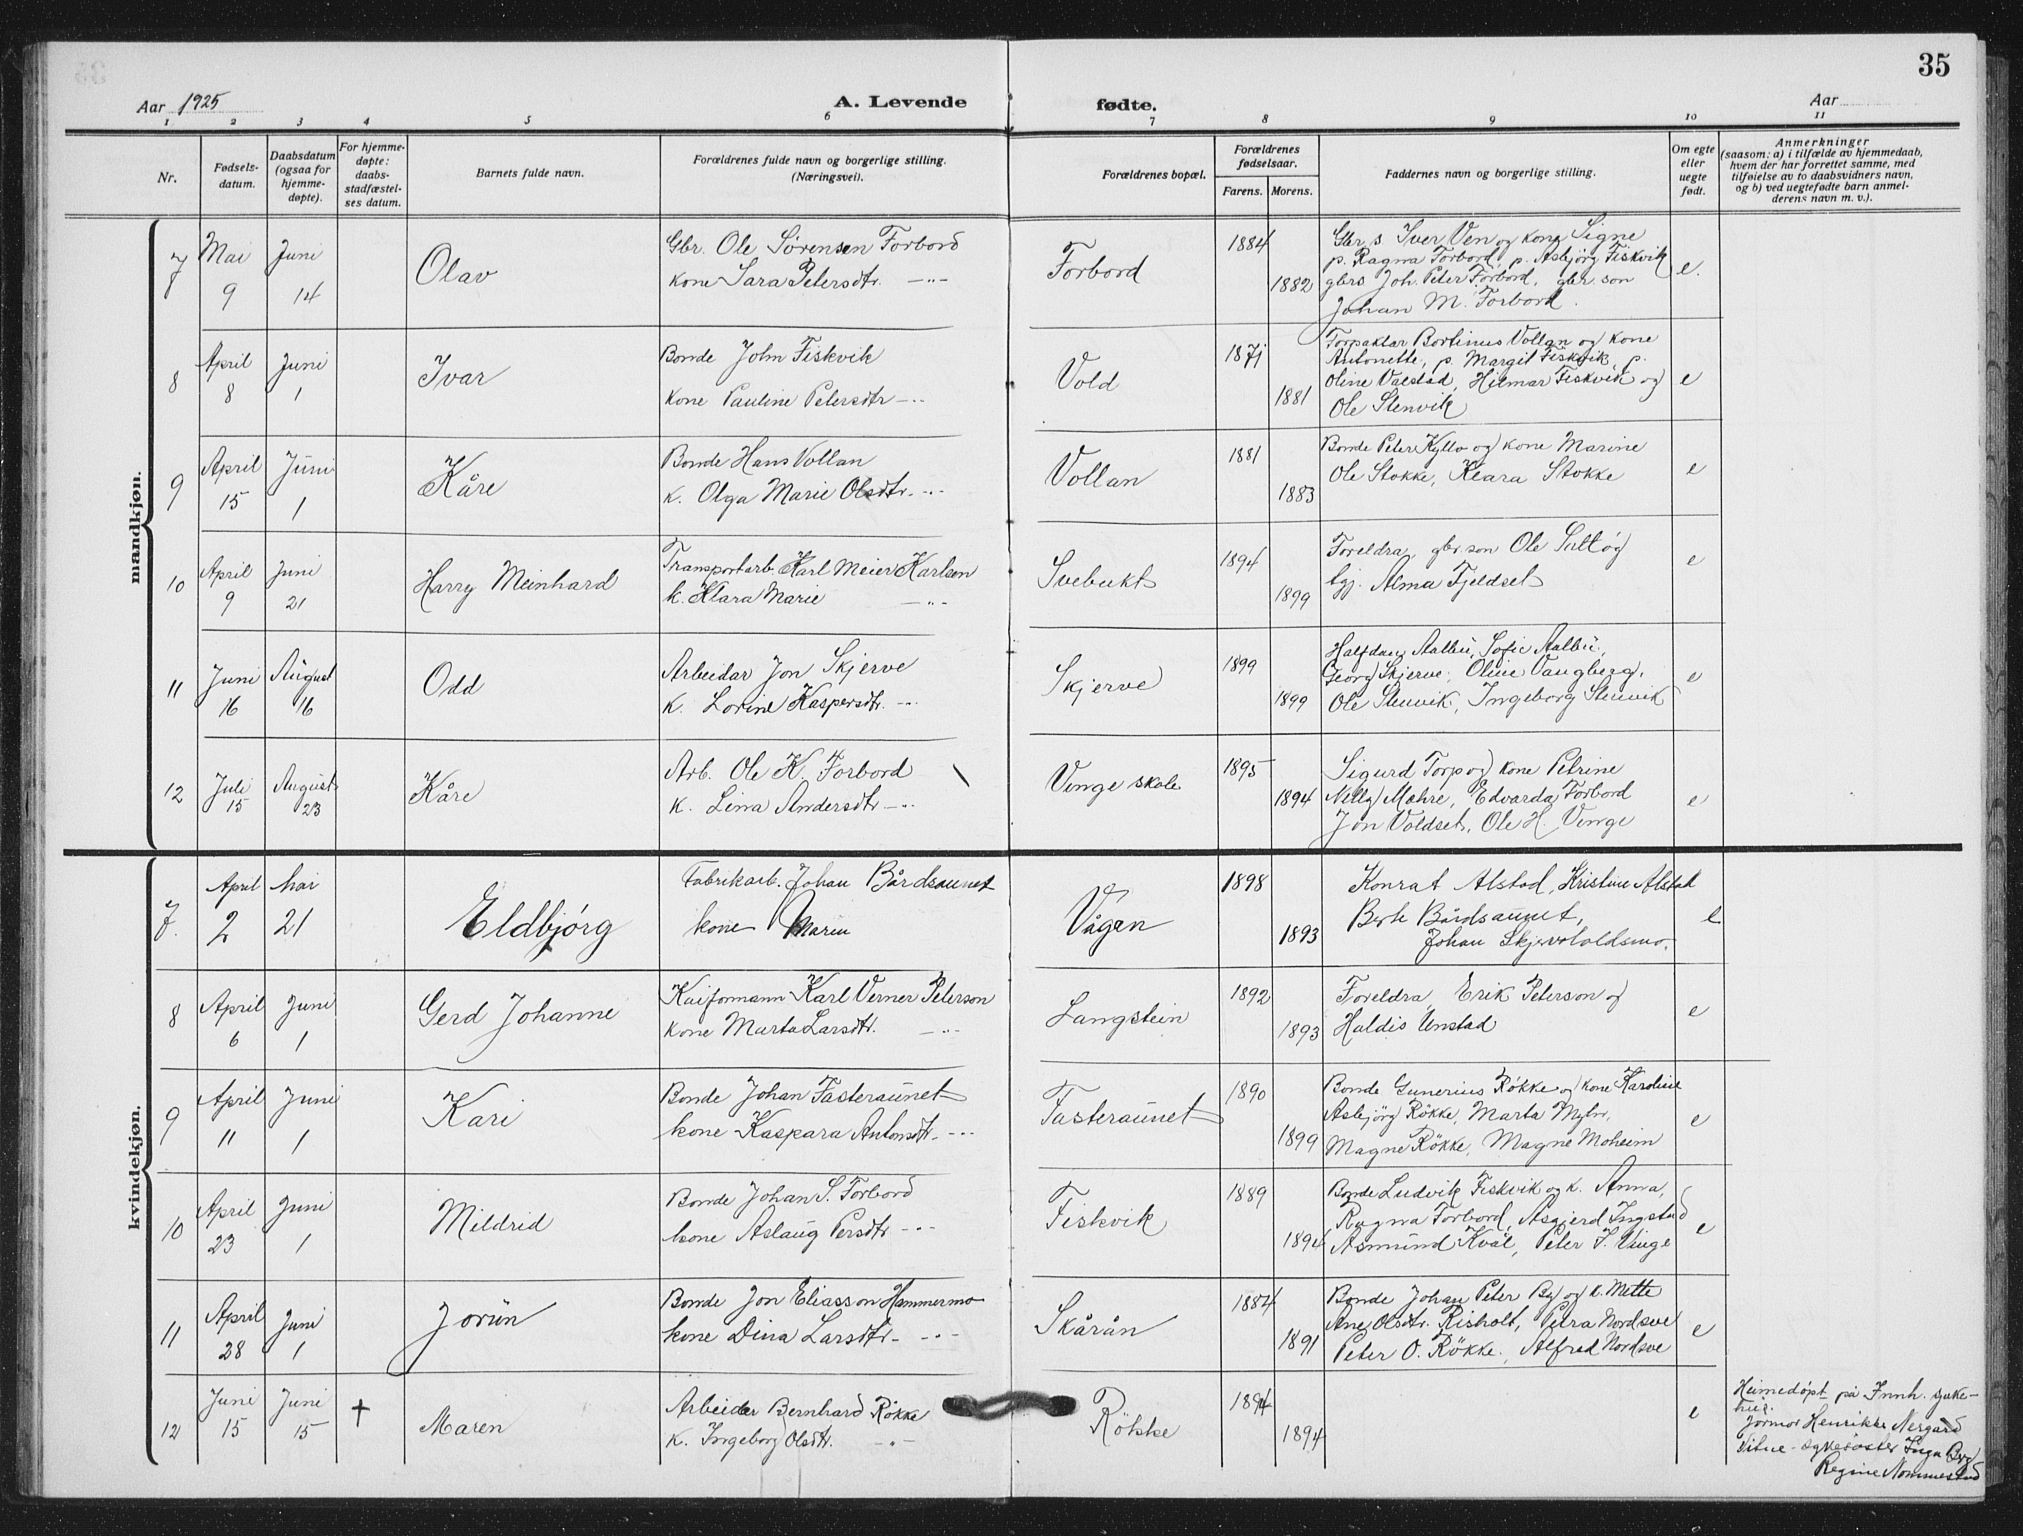 35
Aar 1925
A. Levende fødte.
Aar
1 2 3 4 5 6 7 8 9 10 11
Nr.
Fødsels-datum.
Daabsdatum (ogsaa for hjemme-døpte).
For hjemme-døpte: daabs-stadfæstel-ses datum.
Barnets fulde navn.
Forældrenes fulde navn og borgerlige stilling. (Næringsvei).
Forældrenes bopæl.
Forældrenes fødselsaar.
Farens. Morens.
Faddernes navn og borgerlige stilling.
Om egte eller uegte født.
Anmerkninger (saasom: a) i tilfælde av hjemmedaab, hvem der har forrettet samme, med tilføielse av to daabsvidners navn, og b) ved uegtefødte barn anmel-derens navn m. v.).
mandkjøn.
7 Mai 9 Juni 14 Olav
Gbr. Ole Sørensen Forbord
kone Sara Petersdtr. —"—
Forbord 1884 1882
Gbr s. Iver Ven og kone Signe
p. Ragna Forbord, p. Asbjörg Fiskvik
gbrs Joh. Peter Forbord, gbr. son
Johan M. Forbord.
e.
8 April 8 Juni 1 Ivar
Bonde John Fiskvik
kone Pauline Petersdtr —"—
Vold 1881
Forpaktar Bortinus Vollan og kone
Antonette, p. Margit Fiskvik, p.
Oline Valstad, Hilmar Fiskvik og
Ole Stenvik
e
9 April 15 Juni 1 Kåre
Bonde Hans Vollan
k. Olga Marie Olsdtr. —"—
Vollan 1881 1883
Bonde Peter Kyllo og kone Marine
Ole Stokke, Klara Stokke
e
10 April 9 Juni 21 Harry Meinhard
Transportarb. Karl Meier Karlsen
k. Klara Marie —"—
Svebukt 1894 1899
Foreldra, gbr. son Ole
Alma Fjeldset
e
11 Juni 16 August 16 Odd
Arbeidar Jon Skjerve
k. Lorine Kaspersdtr. —"—
Skjerve 1899 1899
Halfdan Aalbu, Sofie Aalbu,
Georg Skjerve, Oline Vangberg,
Ole Stenvik, Ingeborg Stenvik
e
12 Juli 15 August 23 Kåre
Arb. Ole K. Forbord
k. Lina Andersdtr —"—
Vinge skole 1895 1894
Sigurd Torp og kone Petrine
Nelly Mæhre, Edvarda Forbord
Jon Voldset, Ole H. Vinge
e
kvindekjøn.
7. April 2 Mai 21 Eldbjörg
Fabrikarb. Johan Bårdsaunet
kone Maren
Vågan 1898 1893
Konrat Alstad, Kristine Alstad
Berte Bårdsaunet,
Johan Skjervoldsmo.
e
8 April 6 Juni 1 Gerd Johanne
Kaiformann Karl Verner Peterson
kone Marta Larsdtr. —"—
Langstein 1892 1893
Foreldra, Erik Peterson og
Haldis Unstad
e
9 April 11 Juni 1 Kari
Bonde Johan Fasteraunet
kone Kaspara Antonsdtr. —"—
Fasteraunet 1890 1899
Bonde Gunerius Røkke og kone Karoline
Asbjörg Røkke, Marta
Magne Røkke, Magne Moheim
e
10 April 23 Juni 1 Mildrid
Bonde Johan S. Forbord
kone Aslaug Persdtr —"—
Fiskvik 1889 1894
Bonde Ludvik Fiskvik og k. Anna,
Ragna Forbord, Asgjerd Ingstad
Asmund Kvål, Peter J. Vinge
e
11 April 28 Juni 1 Jorun
Bonde Jon Eliasson Hammermo
kone Dina Larsdtr. —"—
Skårån 1884 1891
Bonde Johan Peter By og k. Mette
Ane Olsdtr. Risholt, Petra Nordsve
Peter O. Røkke, Alfred Nordsve
e
12 Juni 15 Juni 15 † Maren
Arbeider Bernhard Røkke
k. Ingeborg Olsdtr. —"—
Røkke 1894 1894
e
Heimedöpt på Innh. sjuke-
hus.
Jormor Henrikke Nergård
Vitne - sykesöster Inga Berg
Regine Nommestad